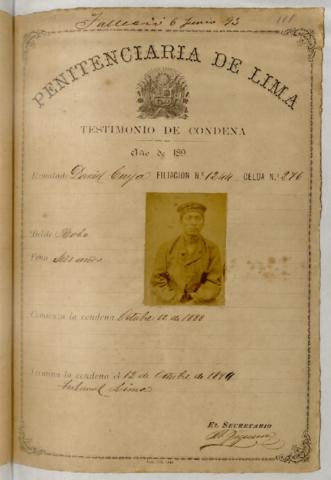 Falleció 6 Junio 93
PENITENCIARIA DE LIMA
TESTIMONIO DE CONDENA
Año de 189
Rematado David FILIACION N.º 1244 CELDA N.º 276
Delito Robo
Pena Seis años
Comienza la condena Octubre 12 de 1888
Termina la condena el 12 de Octubre de 1894
Tribunal Lima
EL SECRETARIO